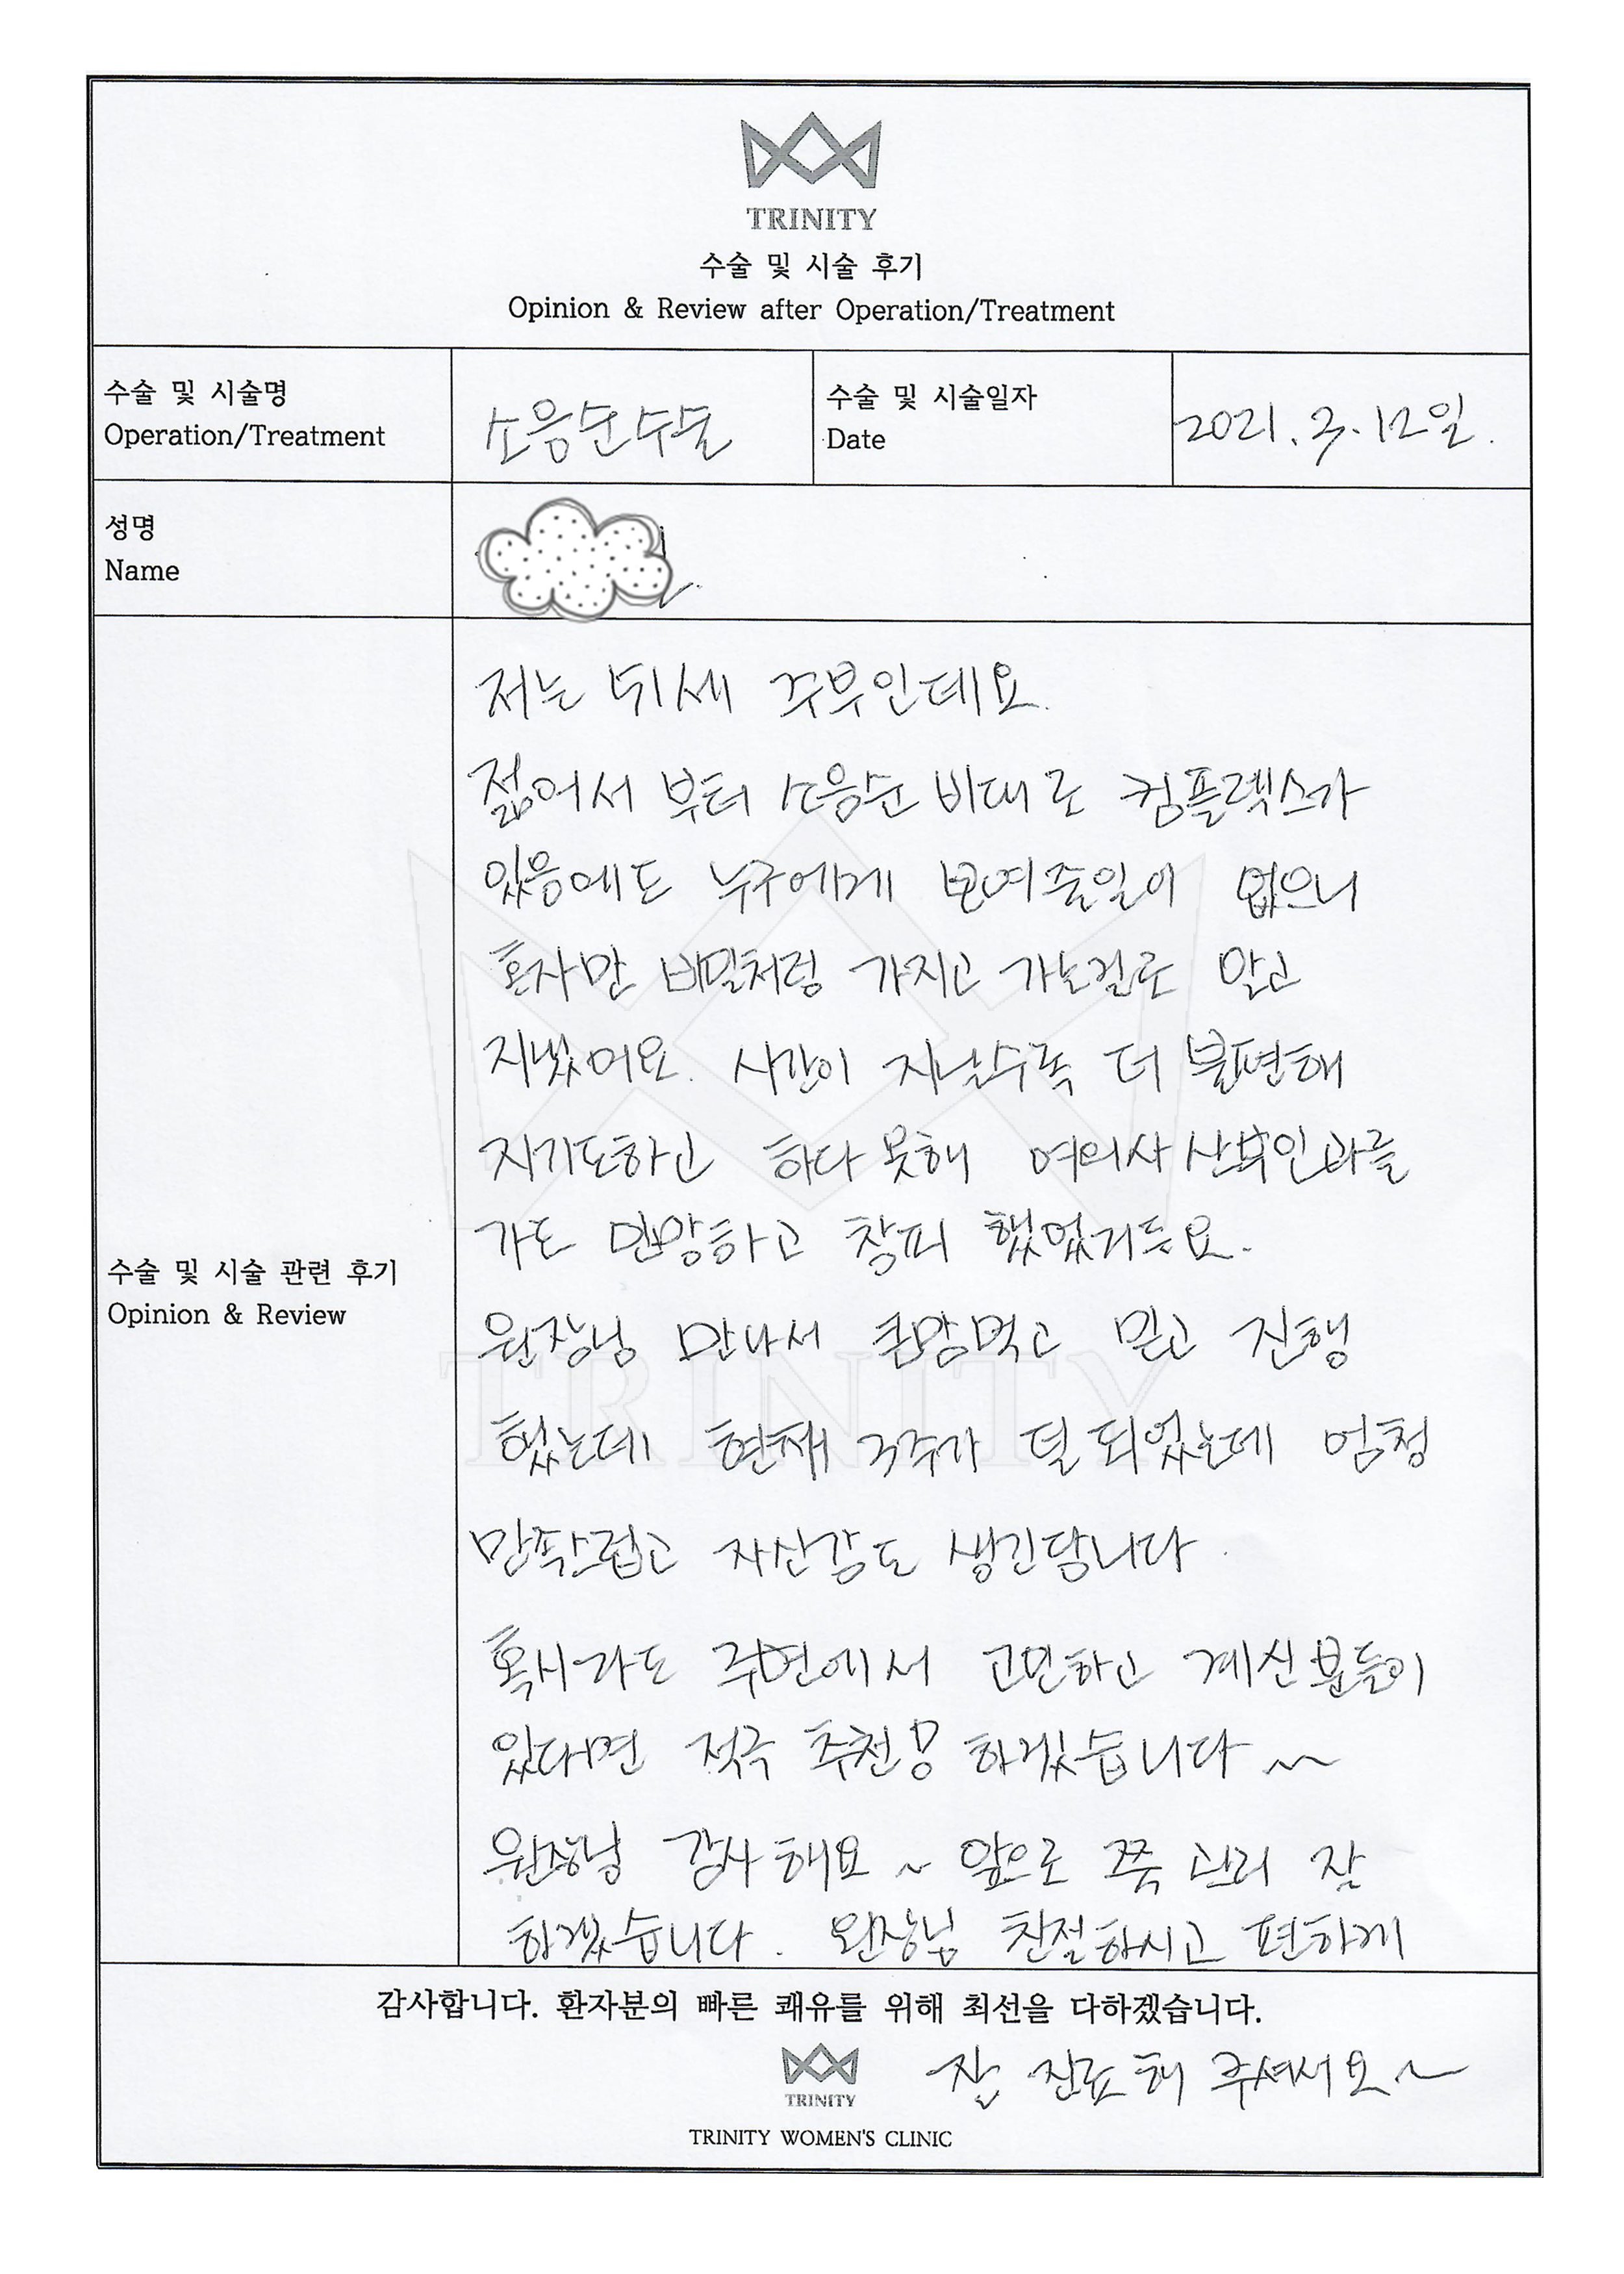 TRINITY
수술 및 시술 후기
Opinion & Review after Operation/Treatment
수술 및 시술명
Operation/Treatment
소음순수술
수술 및 시술일자
Date
2021. 3. 12일.
성명
Name
저는 51세 주부인데요.
젊어서 부터 소음순 비대로 컴플렉스가
있음에도 누구에게 보여줄일이 없으니
혼자만 비밀처럼 가지고 가는걸로 알고
지냈어요. 시간이 지날수록 더 불편해
지기도하고 하다 못해 여의사 산부인과를
가도 민망하고 창피 했었거든요.
원장님 만나서 큰맘먹고 믿고 진행
했는데 현재 3주가 덜 되었는데 엄청
만족스럽고 자신감도 생긴답니다
혹시라도 주변에서 고민하고 계신분들이
있다면 적극 추천!! 하겠습니다 ~
원장님 감사해요 ~ 앞으로 쭉 관리 잘
하겠습니다. 원장님 친절하시고 편하게
수술 및 시술 관련 후기
Opinion & Review
감사합니다. 환자분의 빠른 쾌유를 위해 최선을 다하겠습니다.
잘 진료해 주셔서요~
TRINITY
TRINITY WOMEN'S CLINIC
TRINITY